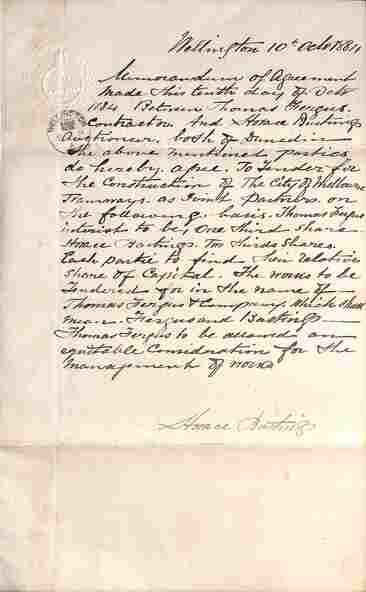 Wellington 10th Octo 1884
Memorandum of Agreement
Made this tenth day of Octo
1884 Between Thomas Fergus
Contractor. And Horace Bastings
Auctioneer. both of Dunedin
The above mentioned parties
do hereby agree. To Tender for
the Construction of The City of Melbourne
Tramways. as Joint Partners on
the following basis. Thomas Fergus
interest to be, One third Share
Horace Bastings. Two thirds Shares.
Each partie to find their relative
Share of Capital. The works to be
Tendered for in the name of
Thomas Fergus & Company which shall
mean Fergus and Bastings
Thomas Fergus to be allowed an
equitable Consideration for the
Management of works
Horace Bastings